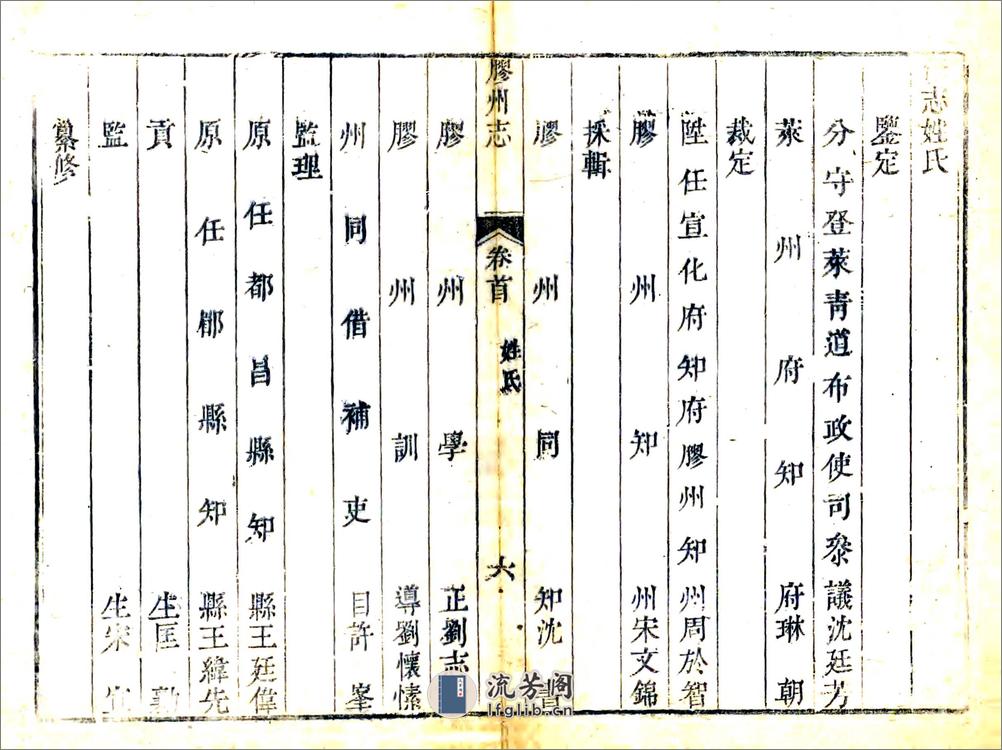 志姓氏
鑒定
分守登萊青道布政使司參議沈廷芳
萊州府知府琳朝
裁定
陞任宣化府知府膠州知州周於智
膠州知州宋文錦
採輯
膠州同知沈
膠州志
卷首
姓氏
六
膠州學正劉志
膠州訓導劉懷愫
州同借補吏目許峯
監理
原任都昌縣知縣王廷偉
原任鄖縣知縣王緯先
貢生匡
監生宋
纂修
流芳阁
lfglib.cn